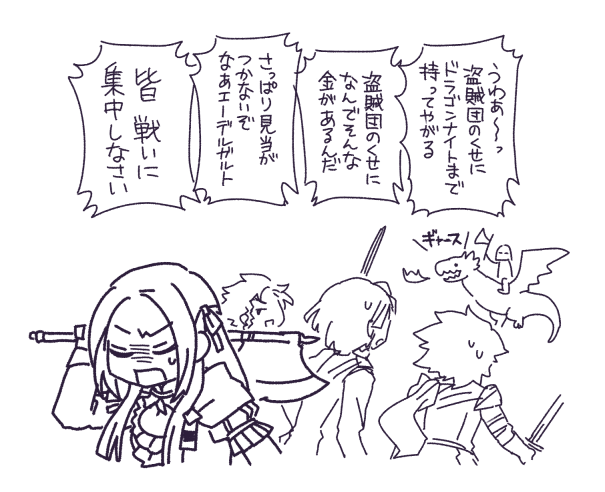 うわぁ〜っ
盗賊団のくせに
ドラゴンナイトまで
持ってやがる
盗賊団のくせに
なんでそんな
金があるんだ
さっぱり見当が
つかないぞ
なあエーデルガルト
皆 戦いに
集中しなさい
ギャース